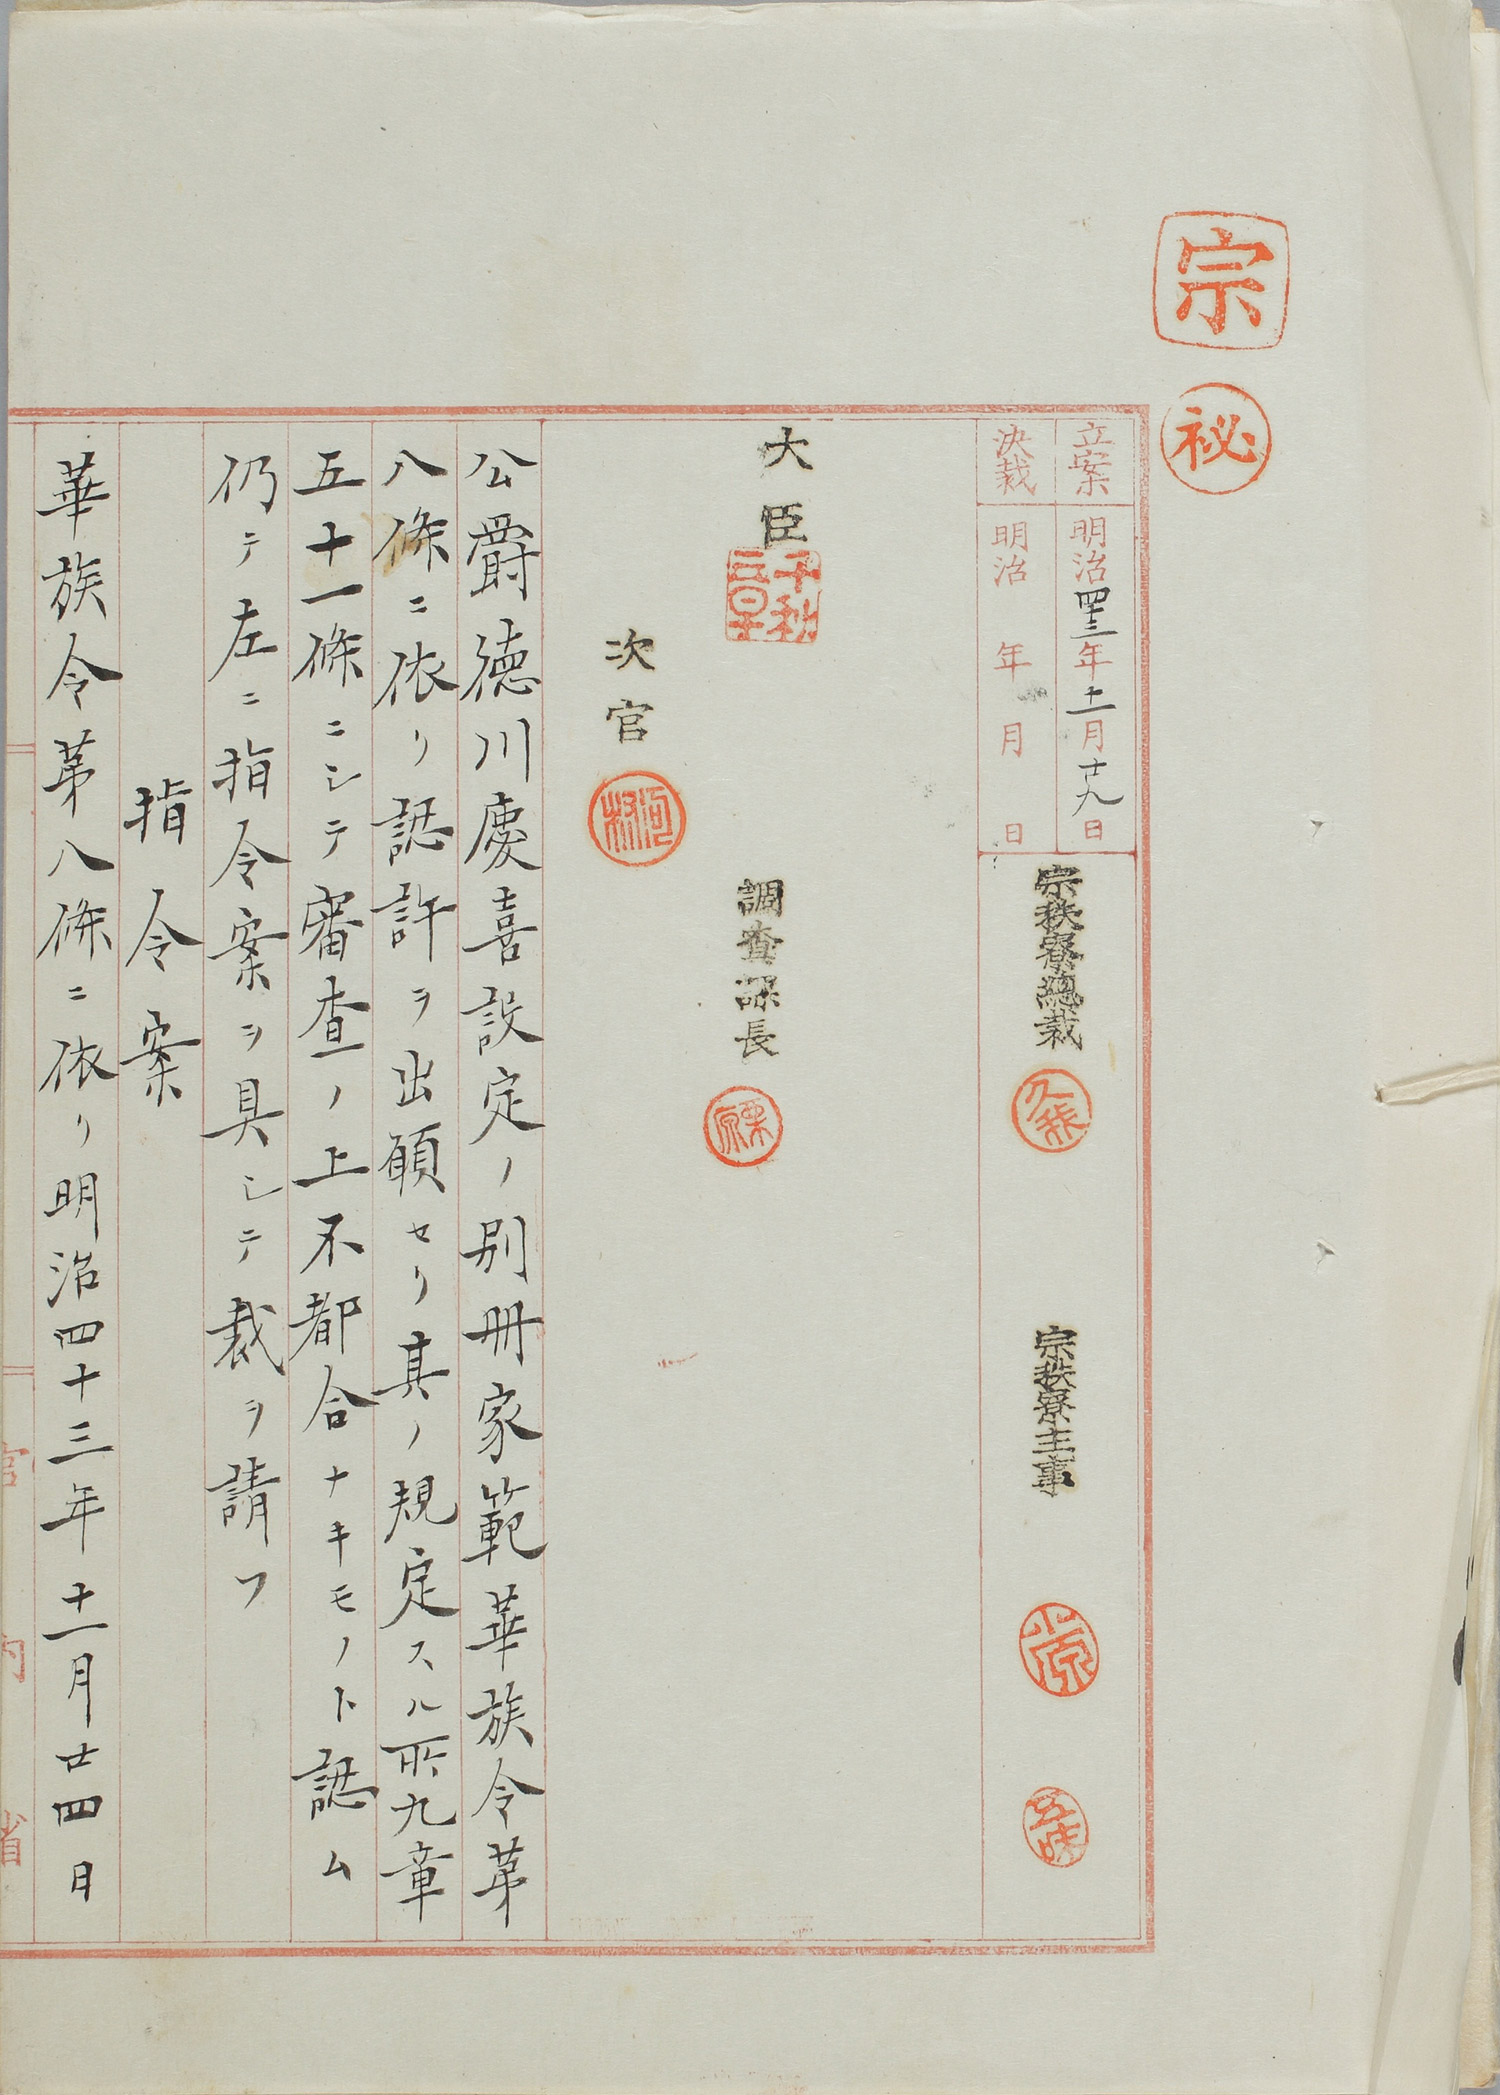 宗
秘
立案 明治四十三年十一月十九日
決裁 明治 年 月 日
宗秩寮總裁 久我
宗秩寮主事 小原 五味
大臣
千秋之章
調査課長 栗原
次官 河村
公爵徳川慶喜設定ノ別冊家範華族令第
八條ニ依リ認許ヲ出願セリ其ノ規定スル所九章
五十一條ニシテ審査ノ上不都合ナキモノト認ム
仍テ左ニ指令案ヲ具シテ裁ヲ請フ
指令案
華族令第八條ニ依リ明治四十三年十一月廿四日
宮内省